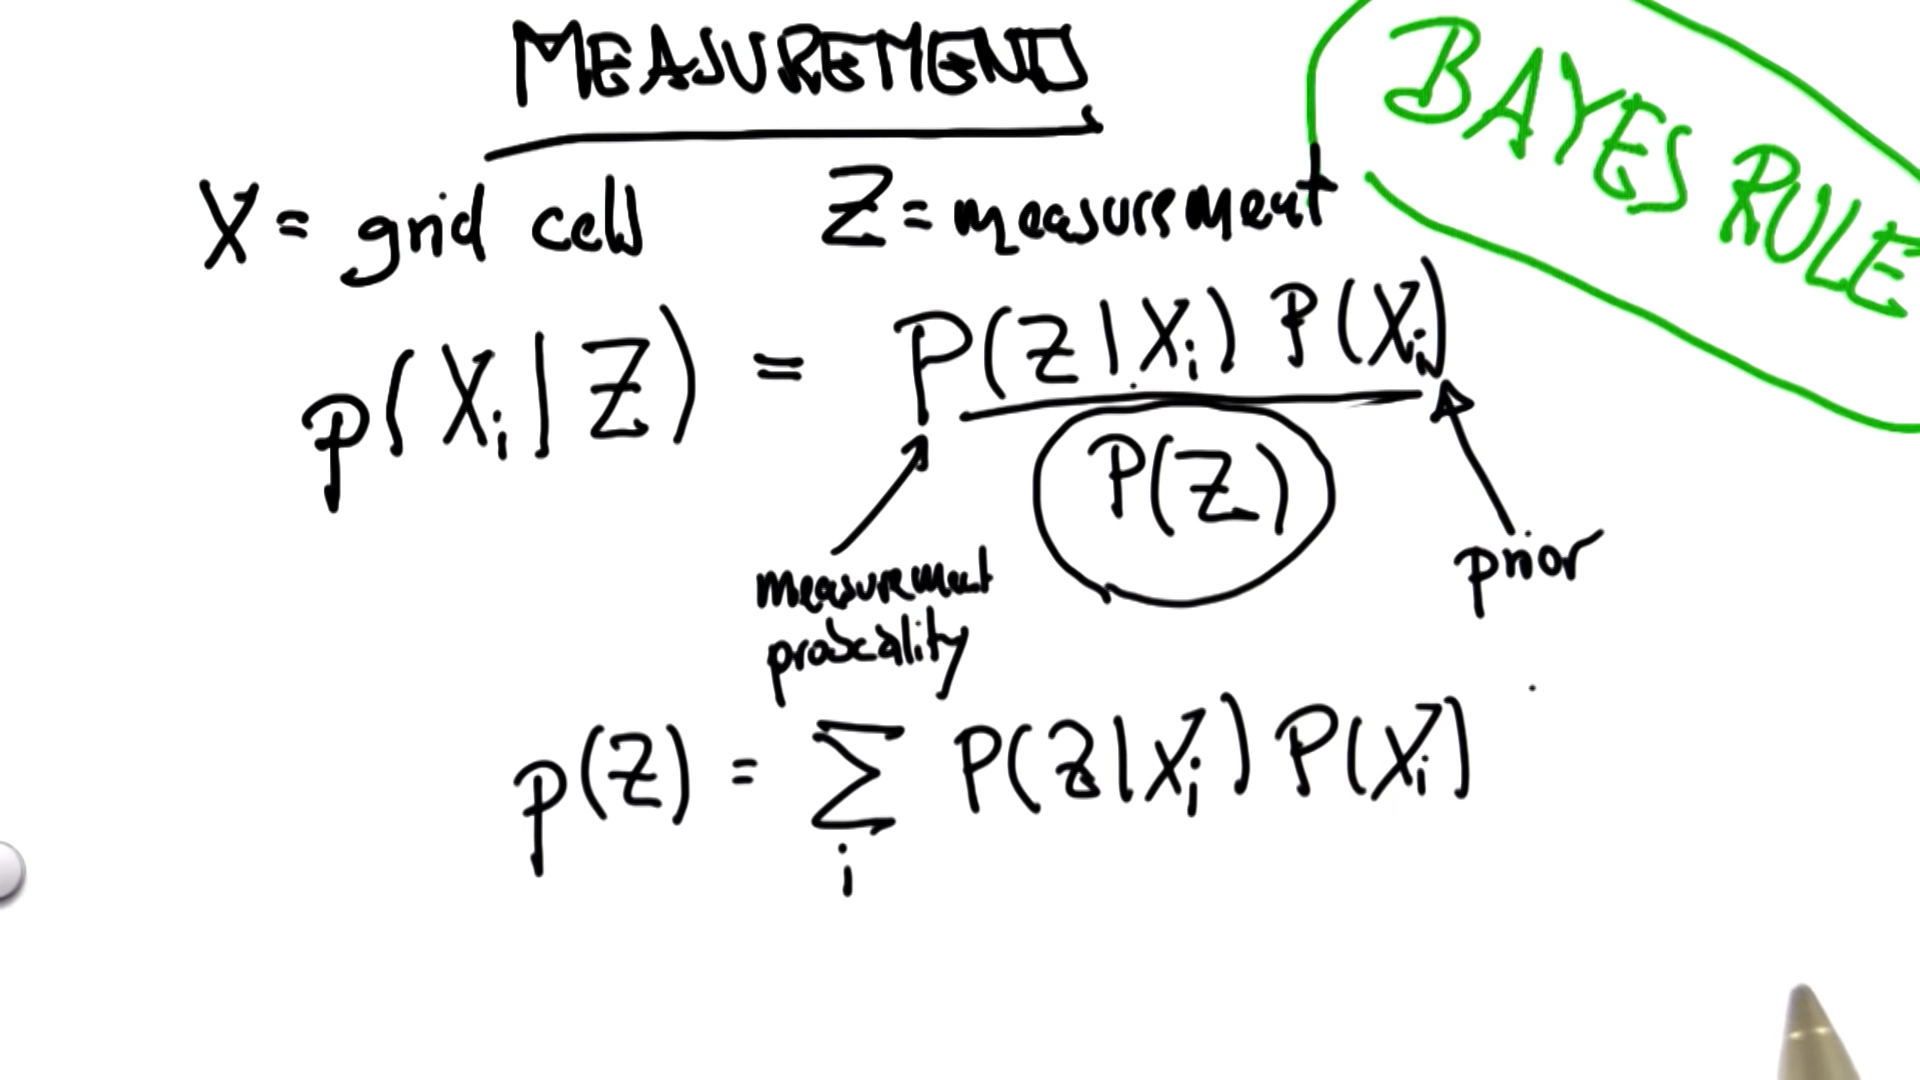 MEASUREMENT
BAYES RULE
X = grid cell Z = measurement
p(Xi | Z) = P(Z | Xi) P(Xi)
P(Z)
measurement
probability
prior
p(Z) = ∑ P(Z | Xi) P(Xi)
i